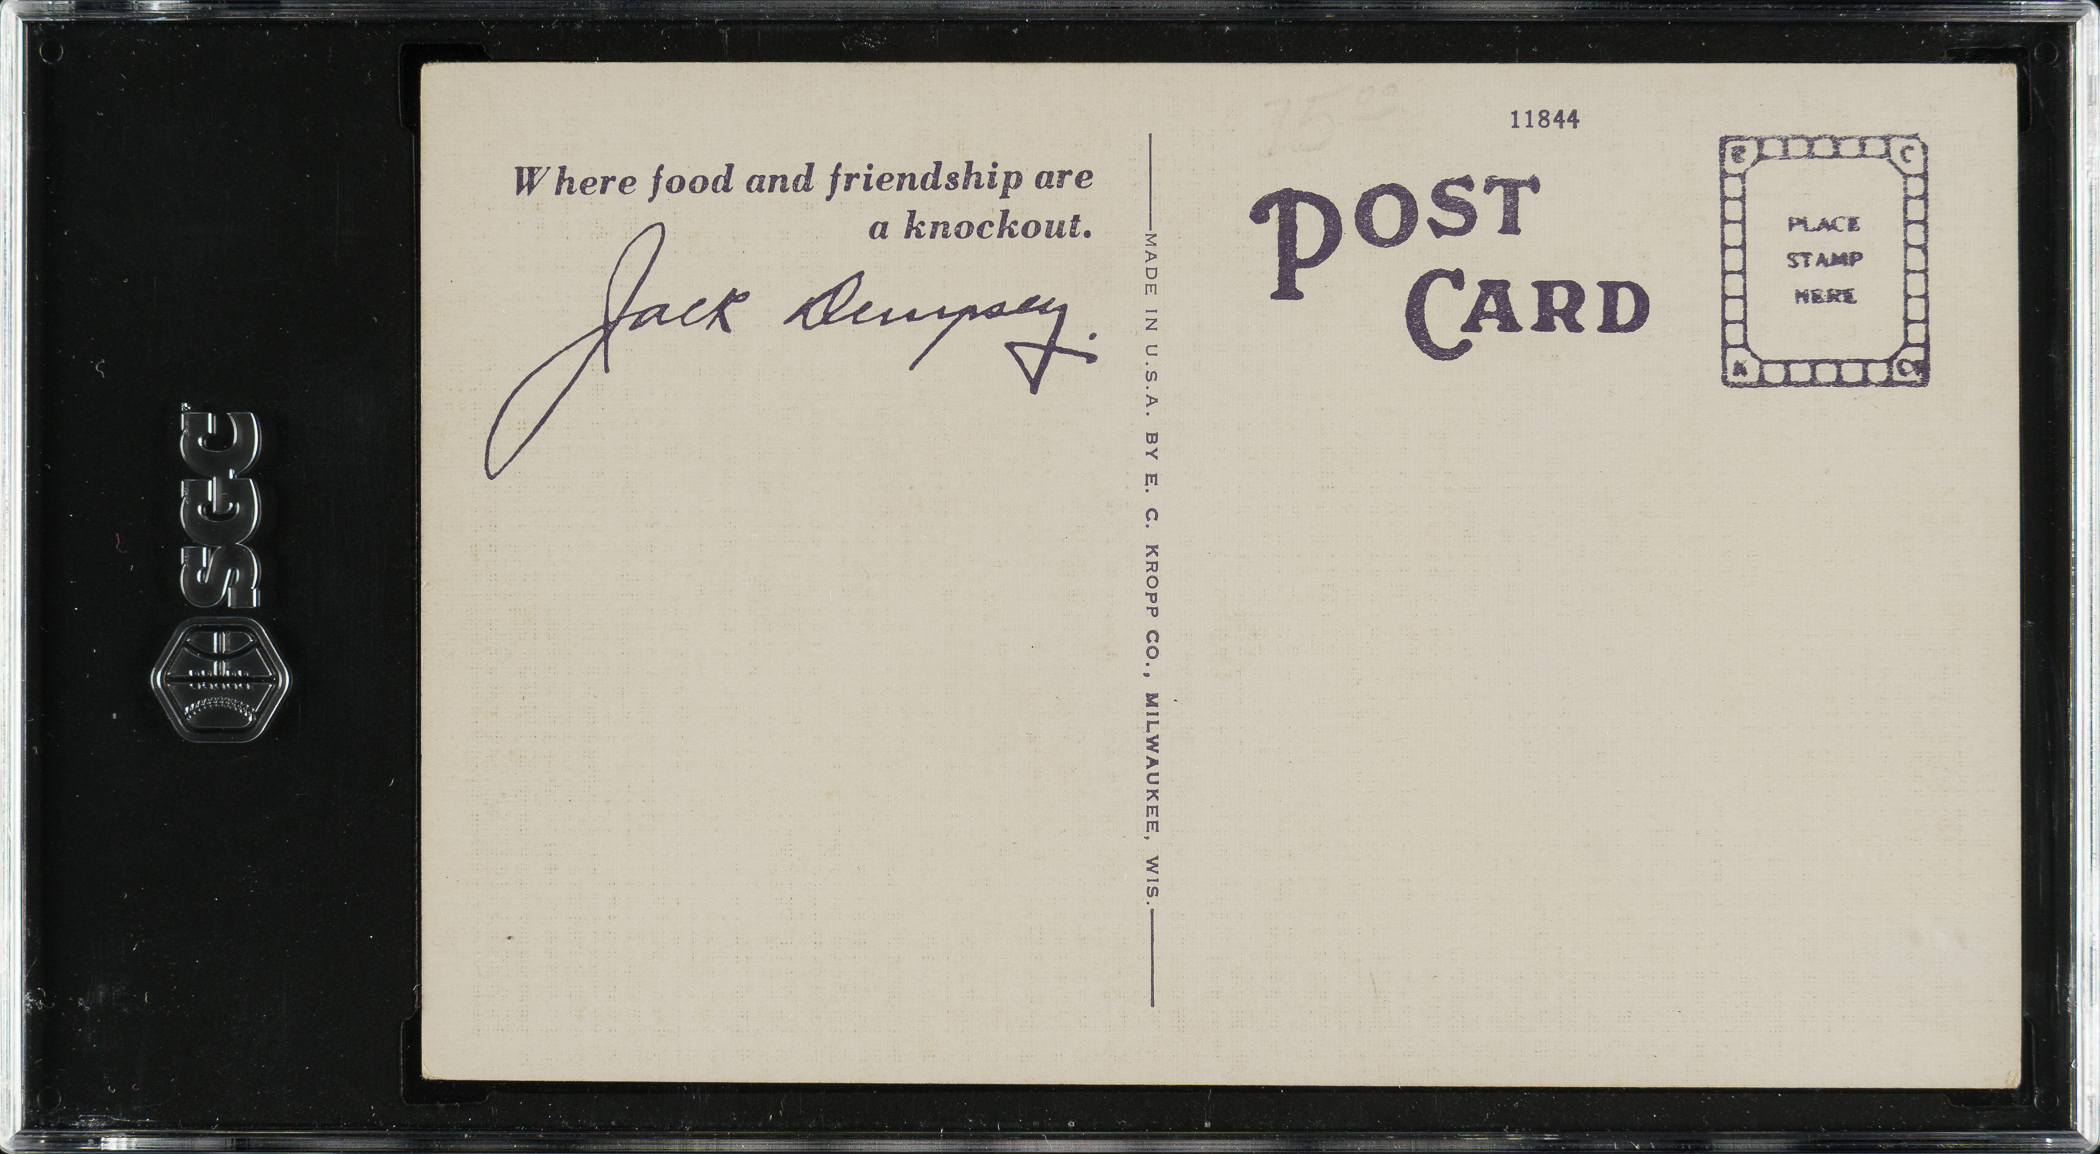 SGC
Where food and friendship are
a knockout.
Jack Dempsey.
MADE IN U.S.A. BY E. C. KROPP CO., MILWAUKEE, WIS.
15 00
11844
POST
CARD
E C
PLACE
STAMP
HERE
K Co